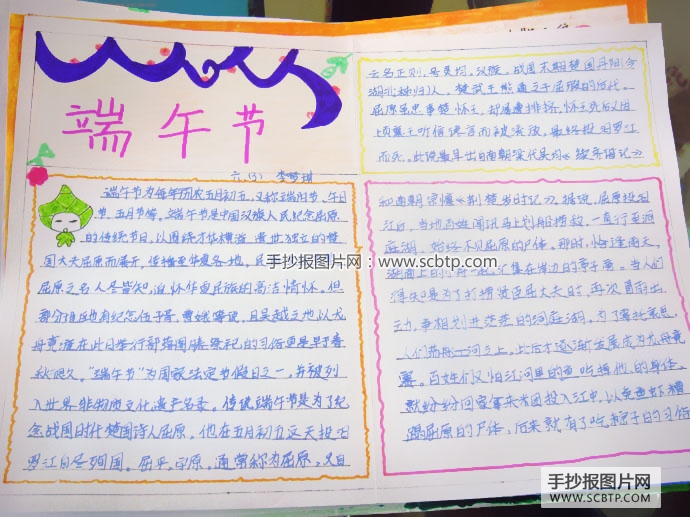 端午节
六.(3) 李梦琪
端午节为每年阴历五月初五，又称端阳节、午日
节、五月节等。端午节是中国汉族人民纪念屈原
的传统节日，以围绕才华横溢、遗世独立的楚
国大夫屈原而展开，传播至华夏各地，民
屈原之名人尽皆知，追怀华夏民族的高洁情怀。但
部分地区也有纪念伍子胥、曹娥等说，且吴越之地以龙
舟竞渡在此日举行部落图腾祭祀的习俗更是早于春
秋很久。"端午节"为国家法定节假日之一，并被列
入世界非物质文化遗产名录。传统端午节是为了纪
念战国时代楚国诗人屈原。他在五月初五这天投汨
罗江自尽殉国。屈平，字原，通常称为屈原，又自
云名正则，号灵均，汉族，战国末期楚国丹阳今
湖北秭归人，楚武王熊通之子屈瑕的后代。
屈原虽忠事楚怀王，却屡遭排挤，怀王死后又因
顷襄王听信谗言而被流放，最终投汨罗江
而死。此说最早出自南朝梁代吴均《续齐谐记》
和南朝宗懔《荆楚岁时记》。据说，屈原投汨
江后，当地百姓闻讯马上划船捞救，一直行至洞
庭湖，始终不见屈原的尸体。那时，恰逢雨天，
湖面上的小舟一起汇集在岸边的亭子旁。当人们
得知是为了打捞贤臣屈大夫时，再次冒雨出
动，争相划进茫茫的洞庭湖。为了寄托哀思，
人们荡舟江河之上，此后才逐渐发展成为龙舟竞
赛。百姓们又怕江河里的鱼吃掉他的身体，
就纷纷回家拿来米团投入江中，以免鱼虾糟
蹋屈原的尸体，后来就有了吃粽子的习俗
手抄报图片网：www.scbtp.com
手抄报图片网
WWW.SCBTP.COM